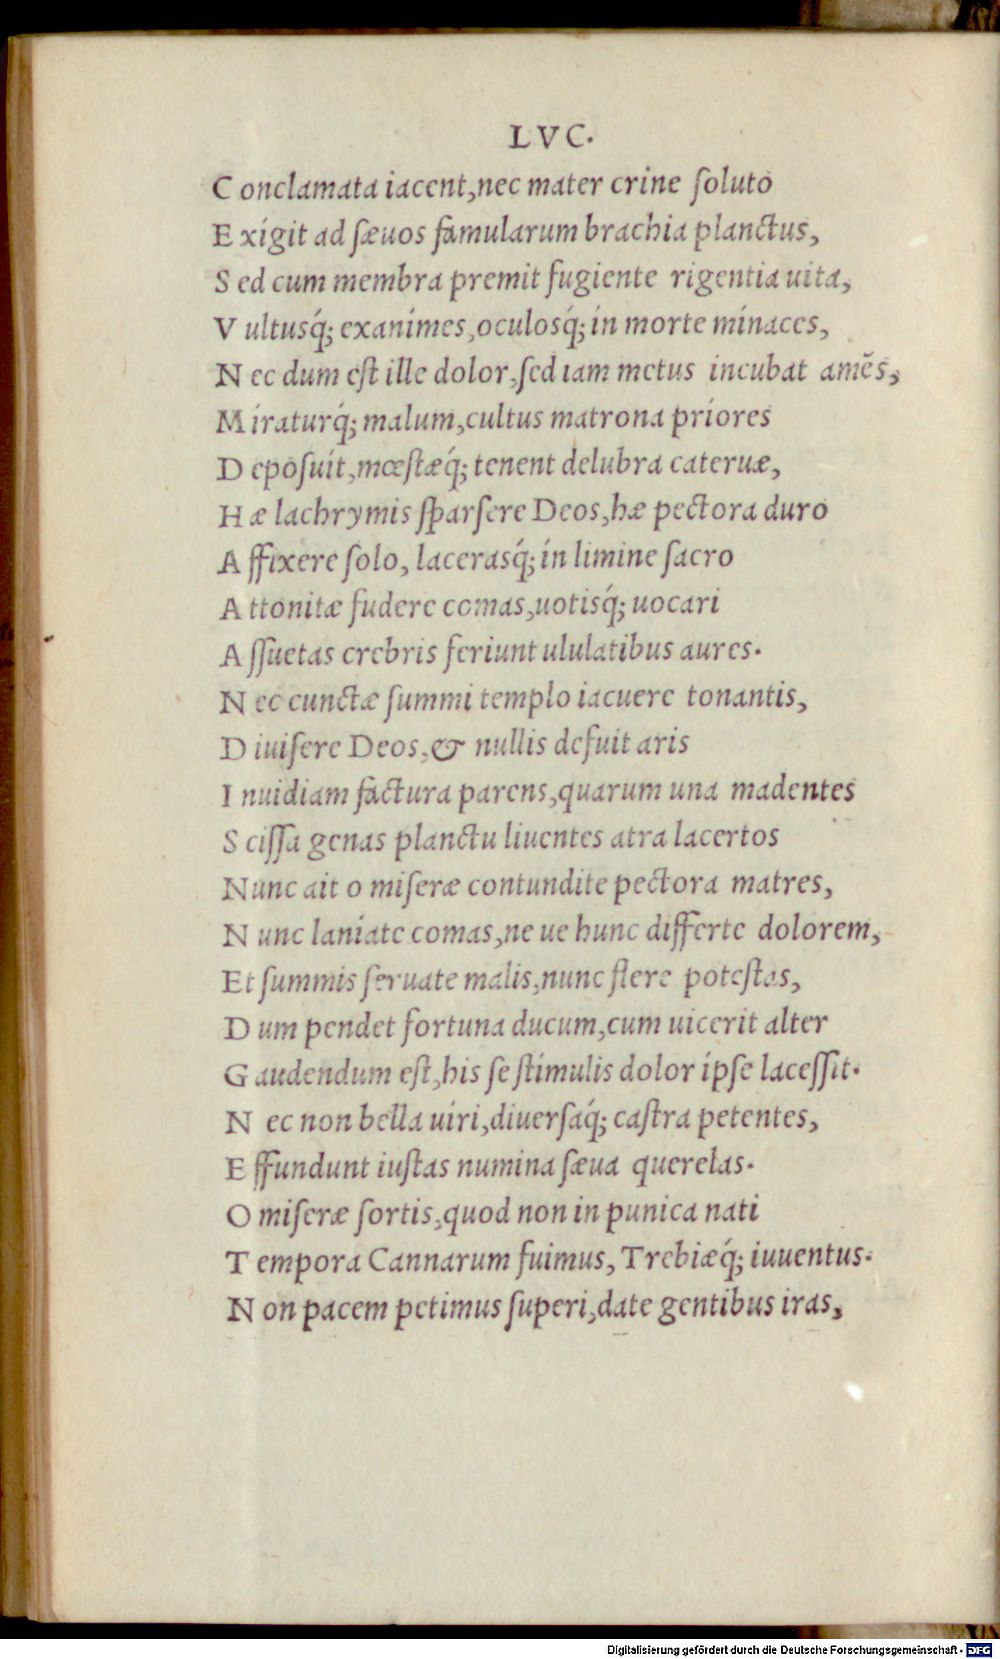 LVC.
C onclamata iacent,nec mater crine ſoluto
E xigit ad ſæuos famularum brachia planctus,
S ed cum membra premit fugiente rigentia uita,
V ultusq́; exanimes,oculosq́; in morte minaces,
N ec dum eſt ille dolor,ſed iam metus incubat amẽs,
M iraturq́; malum,cultus matrona priores
D epoſuit,mœſtæq́; tenent delubra cateruæ,
H æ lachrymis ſparſere Deos,hæ pectora duro
A ffixere ſolo, lacerasq́; in limine ſacro
A ttonitæ fudere comas,uotisq́; uocari
A ſſuetas crebris feriunt ululatibus aures.
N ec cunctæ ſummi templo iacuere tonantis,
D iuiſere Deos,& nullis defuit aris
I nuidiam factura parens,quarum una madentes
S ciſſa genas planctu liuentes atra lacertos
Nunc ait o miſeræ contundite pectora matres,
N unc laniate comas,ne ue hunc differte dolorem,
Et ſummis ſeruate malis,nunc flere poteſtas,
D um pendet fortuna ducum,cum uicerit alter
G audendum eſt,his ſe ſtimulis dolor ipſe laceſſit.
N ec non bella uiri,diuerſaq́; caſtra petentes,
E ffundunt iuſtas numina ſæua querelas.
O miſeræ ſortis,quod non in punica nati
T empora Cannarum fuimus, Trebiæq́; iuuentus.
N on pacem petimus ſuperi,date gentibus iras,
Digitalisierung gefördert durch die Deutsche Forschungsgemeinschaft - DFG